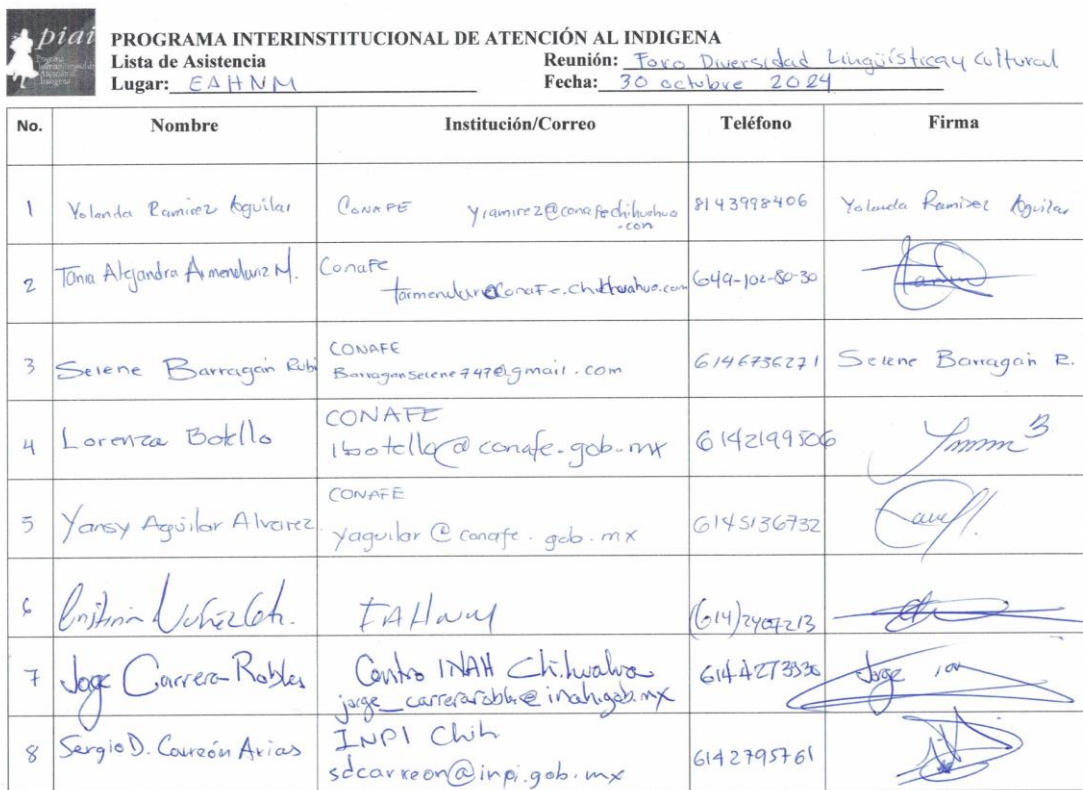 piai
PROGRAMA INTERINSTITUCIONAL DE ATENCIÓN AL INDIGENA
Lista de Asistencia
Reunión: Foro Diversidad Lingüística y Cultural
Lugar: EAHNM
Fecha: 30 octubre 2024
No. Nombre Institución/Correo Teléfono Firma
1 Yolanda Ramirez Aguilar CONAFE yramirez@conafechihuahua.com 8143998406 Yolanda Ramirez Aguilar
2 Tania Alejandra Armendariz M. Conafe 649-102-80-30
3 Selene Barragán Rubi CONAFE BarraganSelene747@gmail.com 6146736271 Selene Barragán R.
4 Lorenza Botello CONAFE lbotello@conafe.gob.mx 6142199506
5 Yansy Aguilar Alvarez CONAFE yaguilar@conafe.gob.mx 6145136732
6 EAHNM
7 Jorge Carrera Robles Centro INAH Chihuahua
jorge_carrerarobles@inah.gob.mx Jorge
8 Sergio D. Carreón Arias INPI Chih
sdcarreon@inpi.gob.mx 6142795761